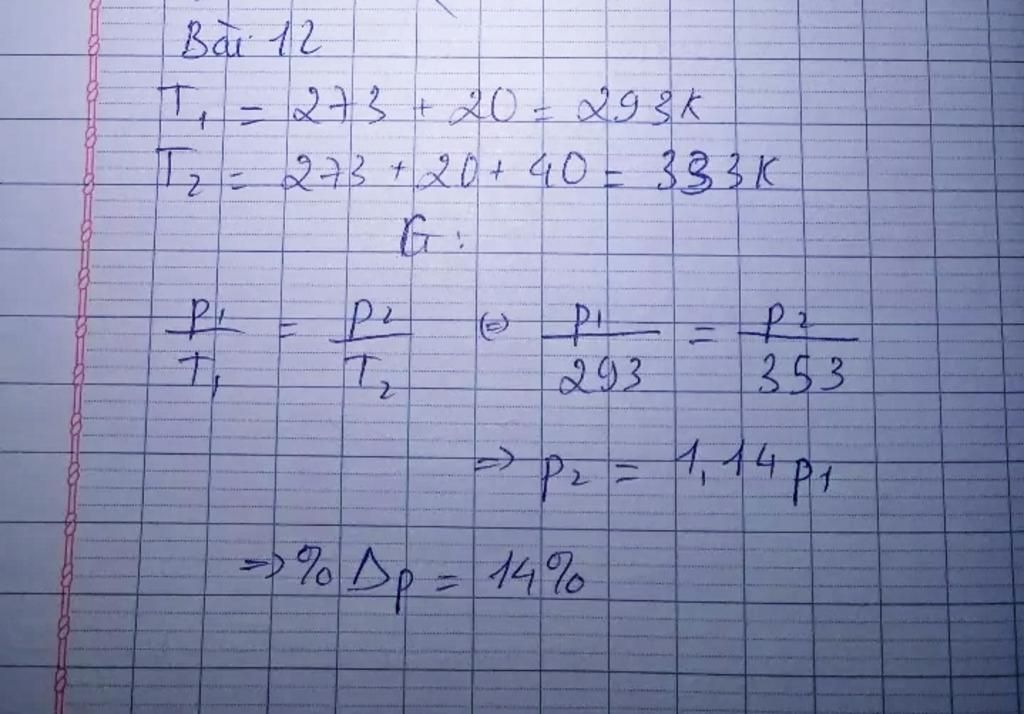 Bài 12
T₁ = 273 + 20 = 293K
T₂ = 273 + 20 + 40 = 333K
G:
p₁/T₁ = p₂/T₂ ⇔ p₁/293 = p₂/353
⇒ p₂ = 1,14 p₁
⇒ % Δp = 14%